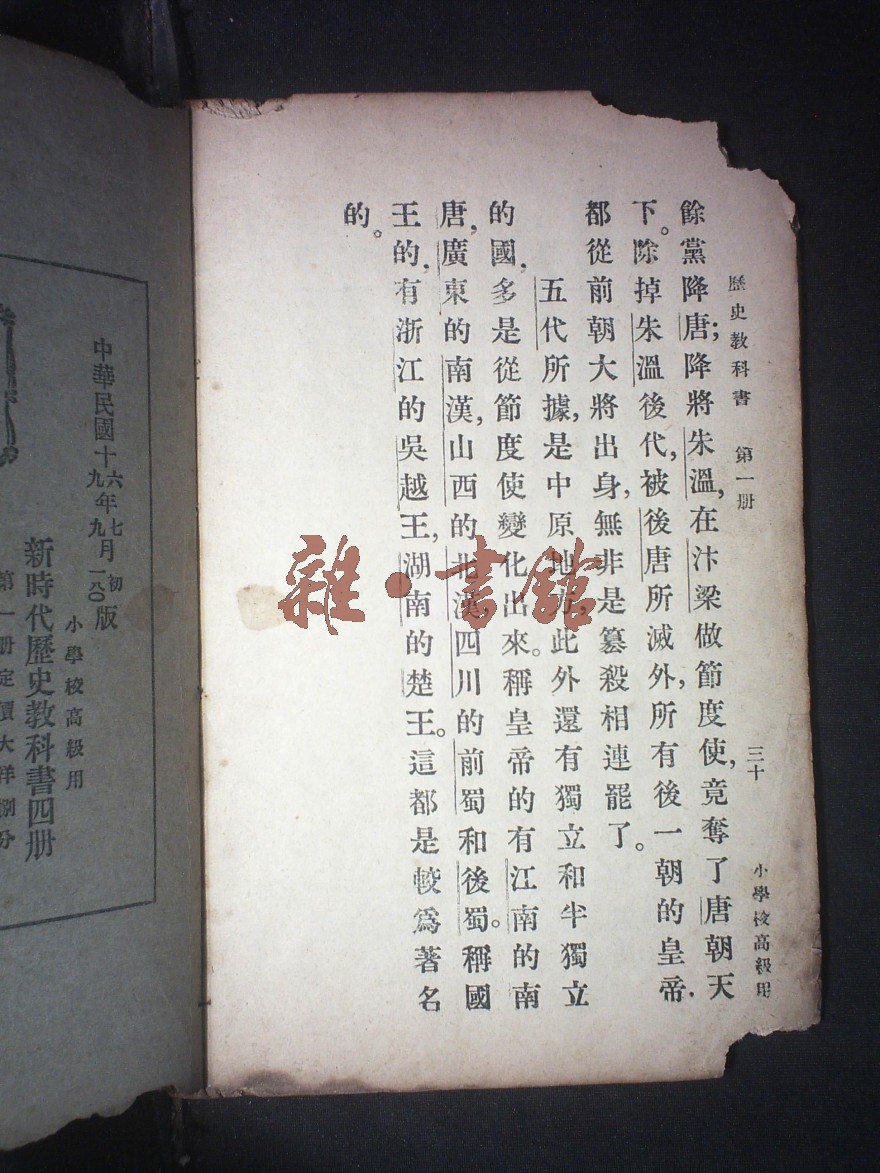 歷史教科書 第一册 三十 小學校高級用
餘黨降唐；降將朱溫，在汴梁做節度使，竟奪了唐朝天
下。除掉朱溫後代，被後唐所滅外，所有後一朝的皇帝，
都從前朝大將出身，無非是篡殺相連罷了。
五代所據，是中原地方，此外還有獨立和半獨立
的國，多是從節度使變化出來。稱皇帝的有江南的南
唐，廣東的南漢，山西的北漢，四川的前蜀和後蜀。稱國
王的，有浙江的吳越王，湖南的楚王。這都是較爲著名
的。
雜·書館
中華民國十六年七月初版
九年九月一八〇版
小學校高級用
新時代歷史教科書四册
第一册定價大洋捌分